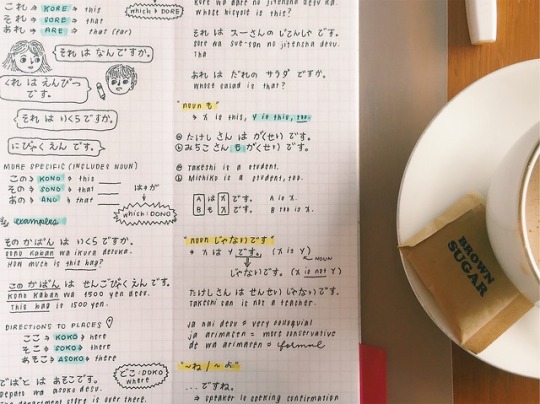 これ → KORE → this
それ → SORE → that
あれ → ARE → that (far)
which → DORE
それ は なんですか。
これ は えんぴつ
です。
それ は いくらですか。
にひゃく えん です。
MORE SPECIFIC (INCLUDES NOUN)
この → KONO → this
その → SONO → that
あの → ANO → that
which: DONO
examples
その かばん は いくら ですか。
sono kaban wa ikura desuka.
How much is this bag?
この かばん は せんごひゃくえん です。
kono kaban wa 1500 yen desu.
This bag is 1500 yen.
DIRECTIONS TO PLACES
ここ → KOKO → here
そこ → SOKO → there
あそこ → ASOKO → there
どこ: DOKO
where
でぱと は あそこです。
depart wa asoko desu.
Whose bicycle is this?
それ は スーさんの じてんしゃ です。
sore wa sue-san no jitensha desu.
あれ は だれの サラダ ですか。
Whose salad is that?
"noun も"
→ X is this, Y is this, too.
ⓐ たけしさん は がくせい です。
ⓑ みちこさん も がくせい です。
ⓐ Takeshi is a student.
ⓑ Michiko is a student, too.
A は X です。 A is X.
B も X です。 B too is X.
"noun じゃないです"
→ X は Y です。 (X is Y)
NOUN
じゃないです。 (X is not Y)
たけしさん は せんせい じゃないです。
Takeshi san is not a teacher.
ja nai desu = very colloquial
ja arimasen = more conservative
de wa arimasen = formal
"~ね / ~よ
...ですね。
→ speaker is seeking confirmation
BROWN
SUGAR